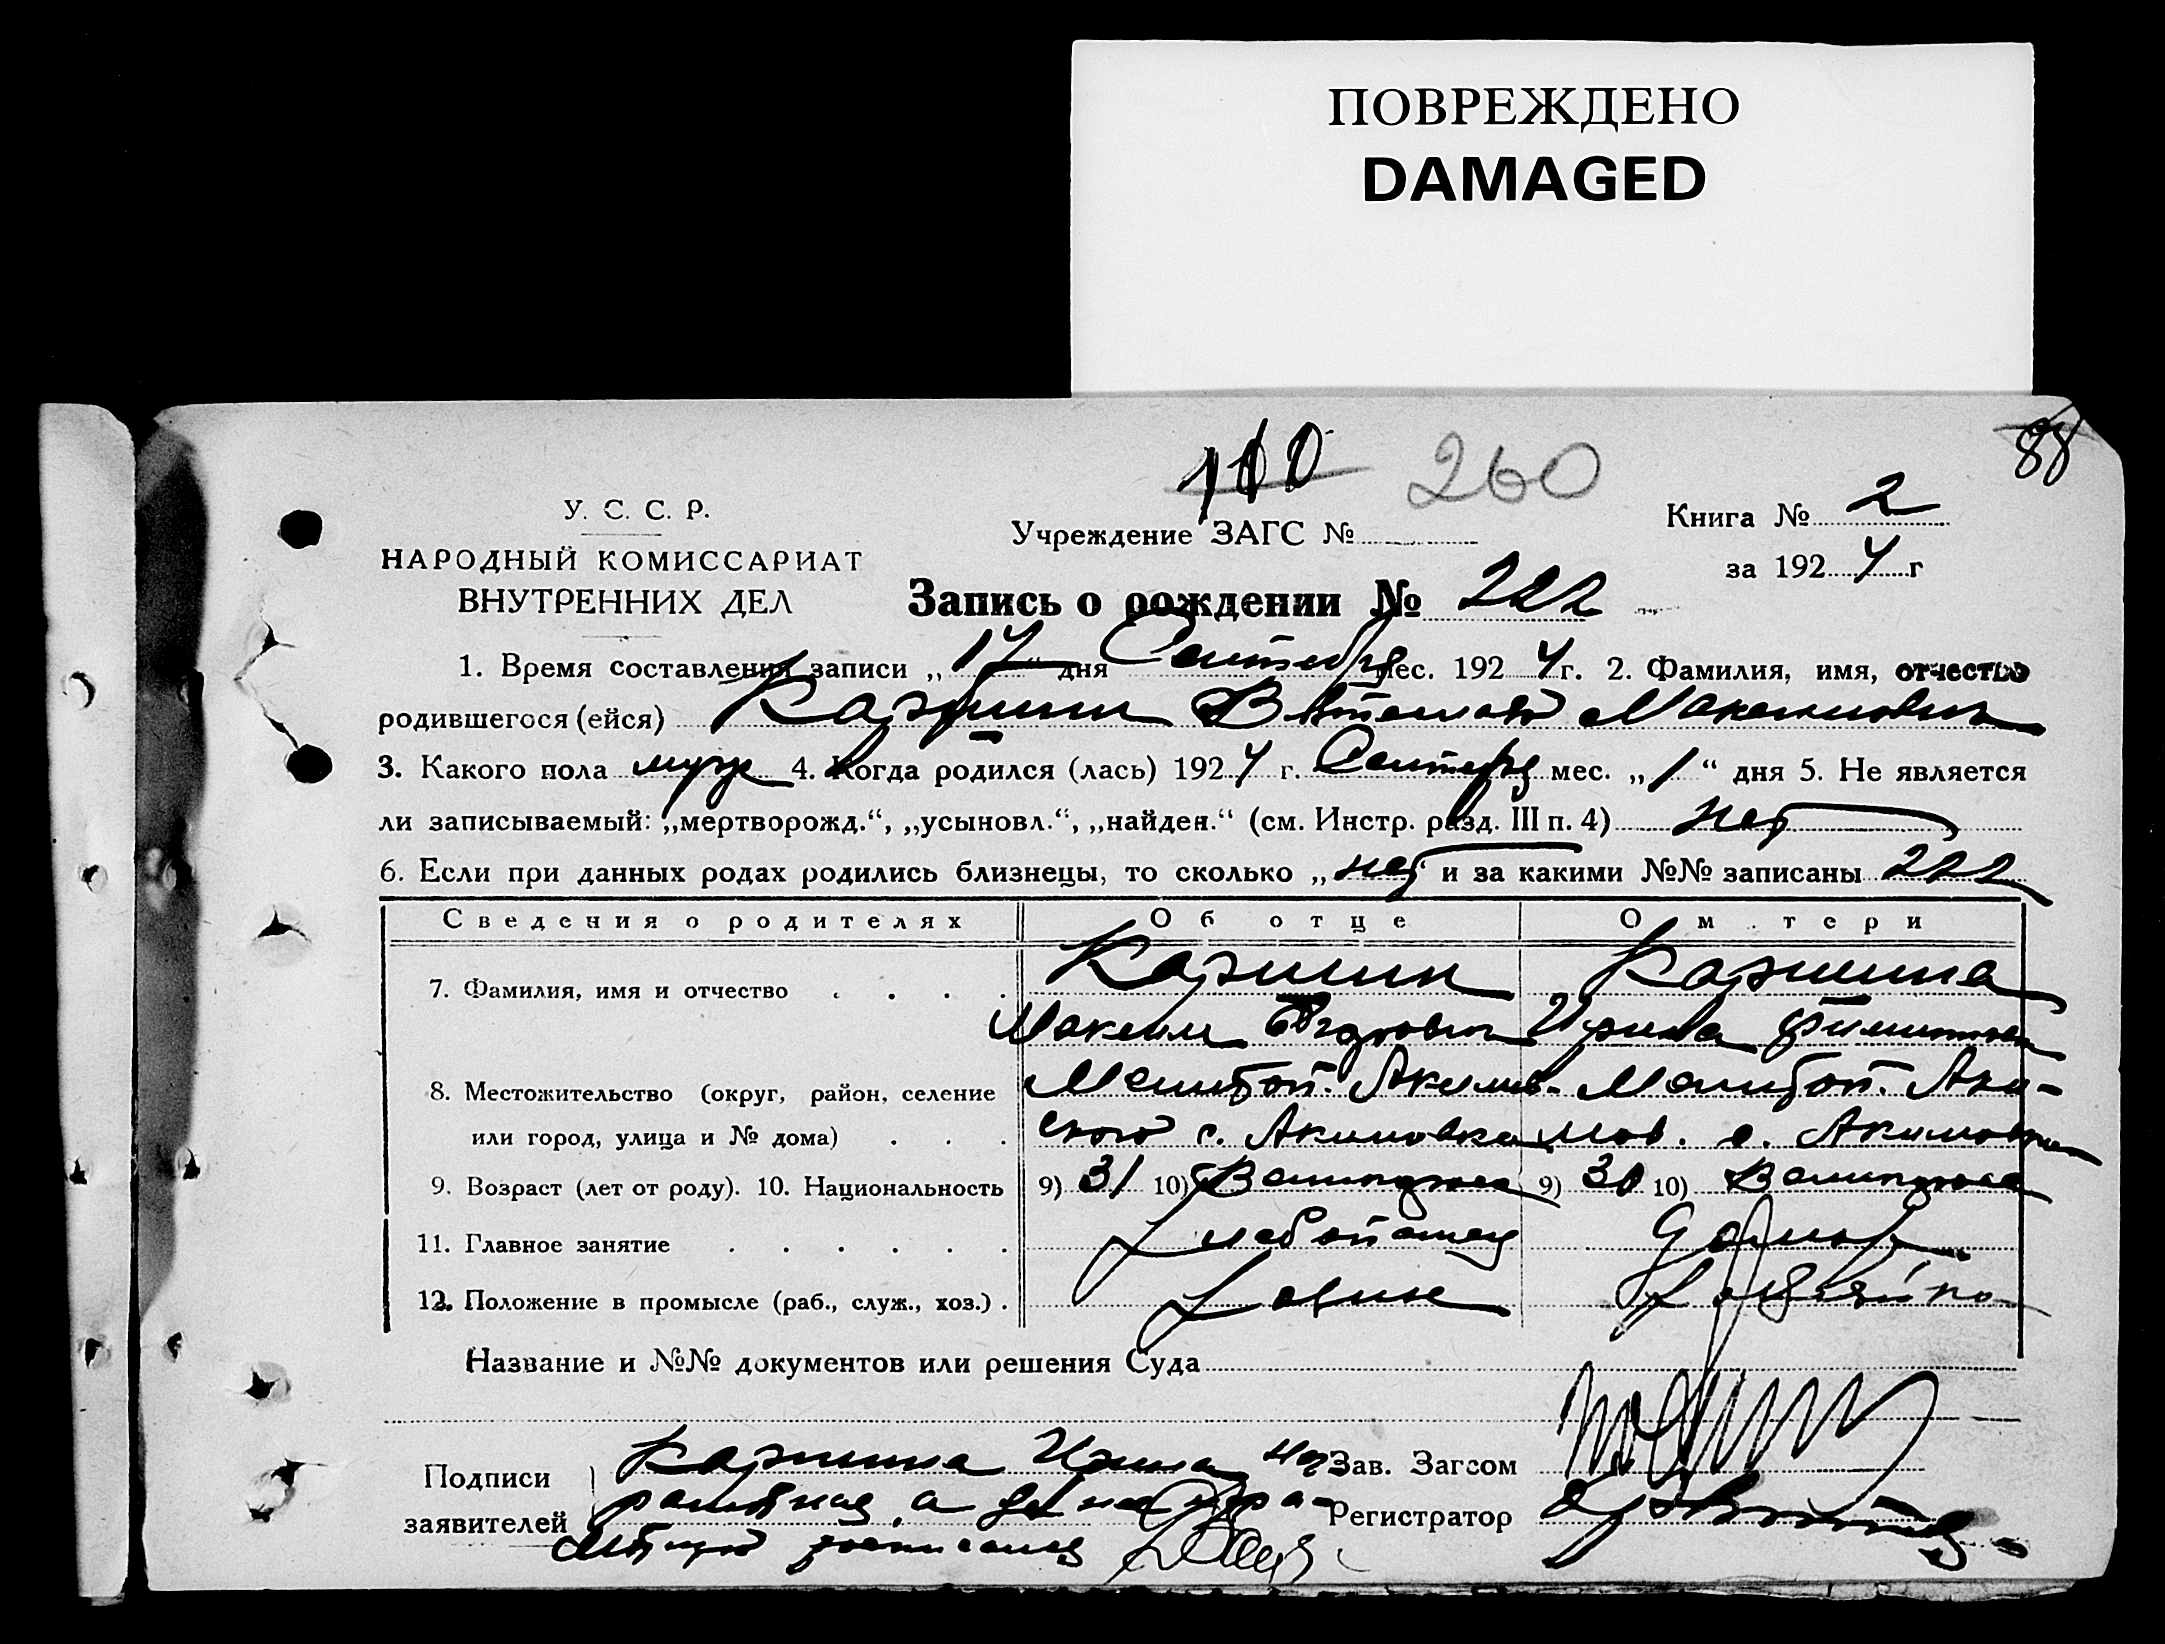 ПОВРЕЖДЕНО
DAMAGED
88
110 260
У. С. С. Р.
НАРОДНЫЙ КОМИССАРИАТ
ВНУТРЕННИХ ДЕЛ
Учреждение ЗАГС №
Книга № 2
за 1924 г
Запись о рождении № 222
1. Время составления записи „17“ дня Сентября мес. 1924 г. 2. Фамилия, имя, отчество
родившегося (ейся) Каршин Максимович
3. Какого пола муж 4. Когда родился (лась) 1924 г. Сентября мес. „1“ дня 5. Не является
ли записываемый: „мертворожд.“, „усыновл.“, „найден.“ (см. Инстр. разд. III п. 4) нет
6. Если при данных родах родились близнецы, то сколько „нет“ и за какими №№ записаны 222
Сведения о родителях Об отце О м тери
7. Фамилия, имя и отчество Каршин Каршина
Максим Ирина
8. Местожительство (округ, район, селение Мелитоп. Акимов- Мелитоп. Аки-
или город, улица и № дома) ского с. Акимовка мов. с. Акимовка
9. Возраст (лет от роду). 10. Национальность 9) 31 10) 9) 30 10)
11. Главное занятие Хлебопашец
12. Положение в промысле (раб., служ., хоз.) Хозяин
Название и №№ документов или решения Суда
Подписи Каршина Ирина Зав. Загсом
заявителей Регистратор